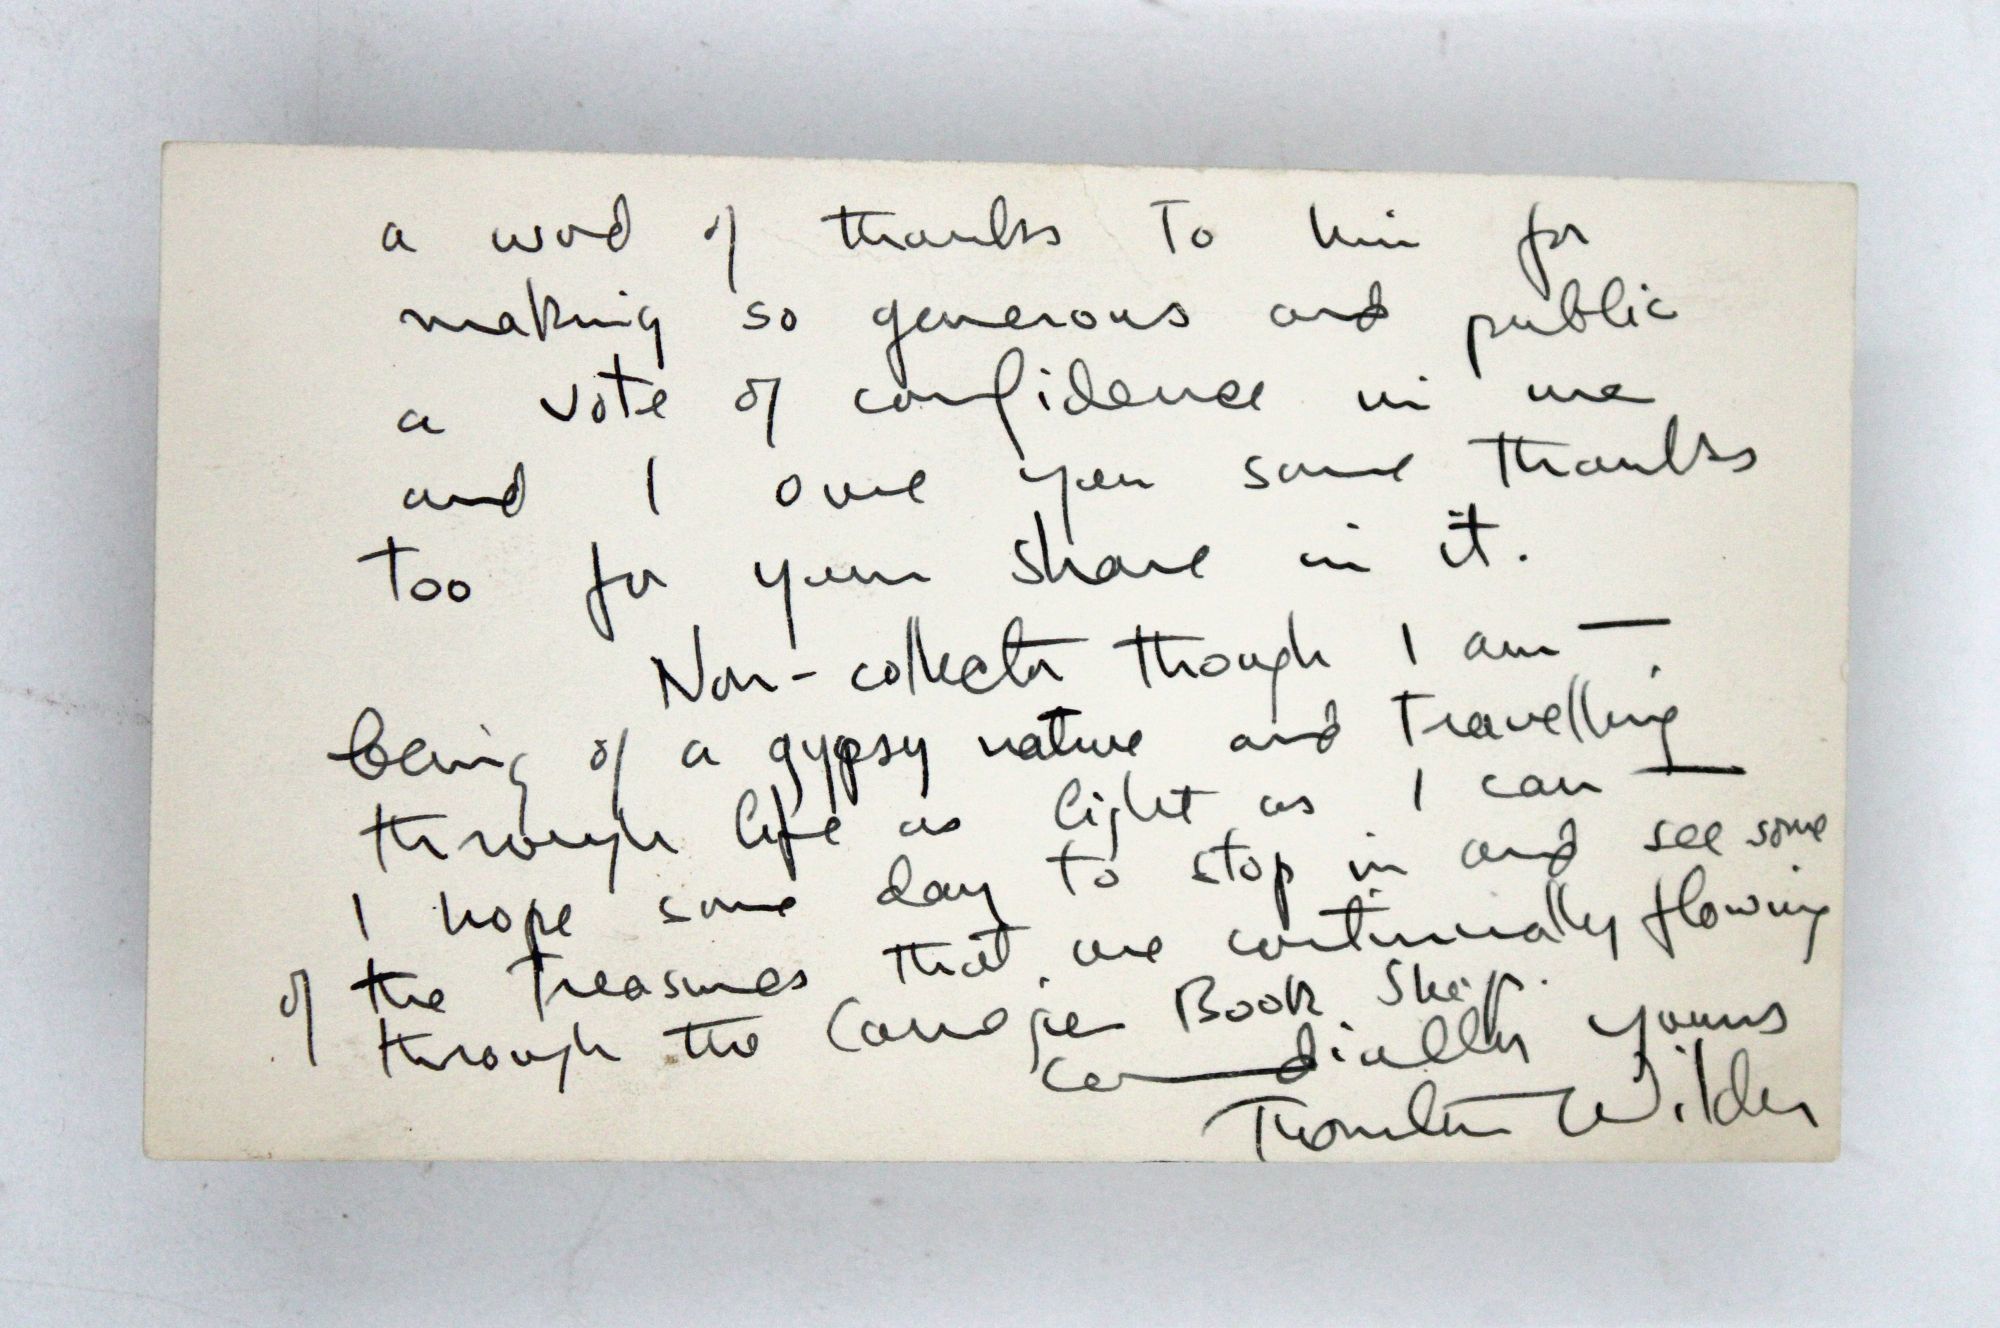 a word of thanks to him for
making so generous and public
a vote of confidence in me
and I owe you some thanks
too for your share in it.
Non-collector though I am —
being of a gypsy nature and travelling
through life as light as I can —
I hope some day to stop in and see some
of the treasures that are continually flowing
through the Carnegie Book Shop.
Cordially yours
Thornton Wilder